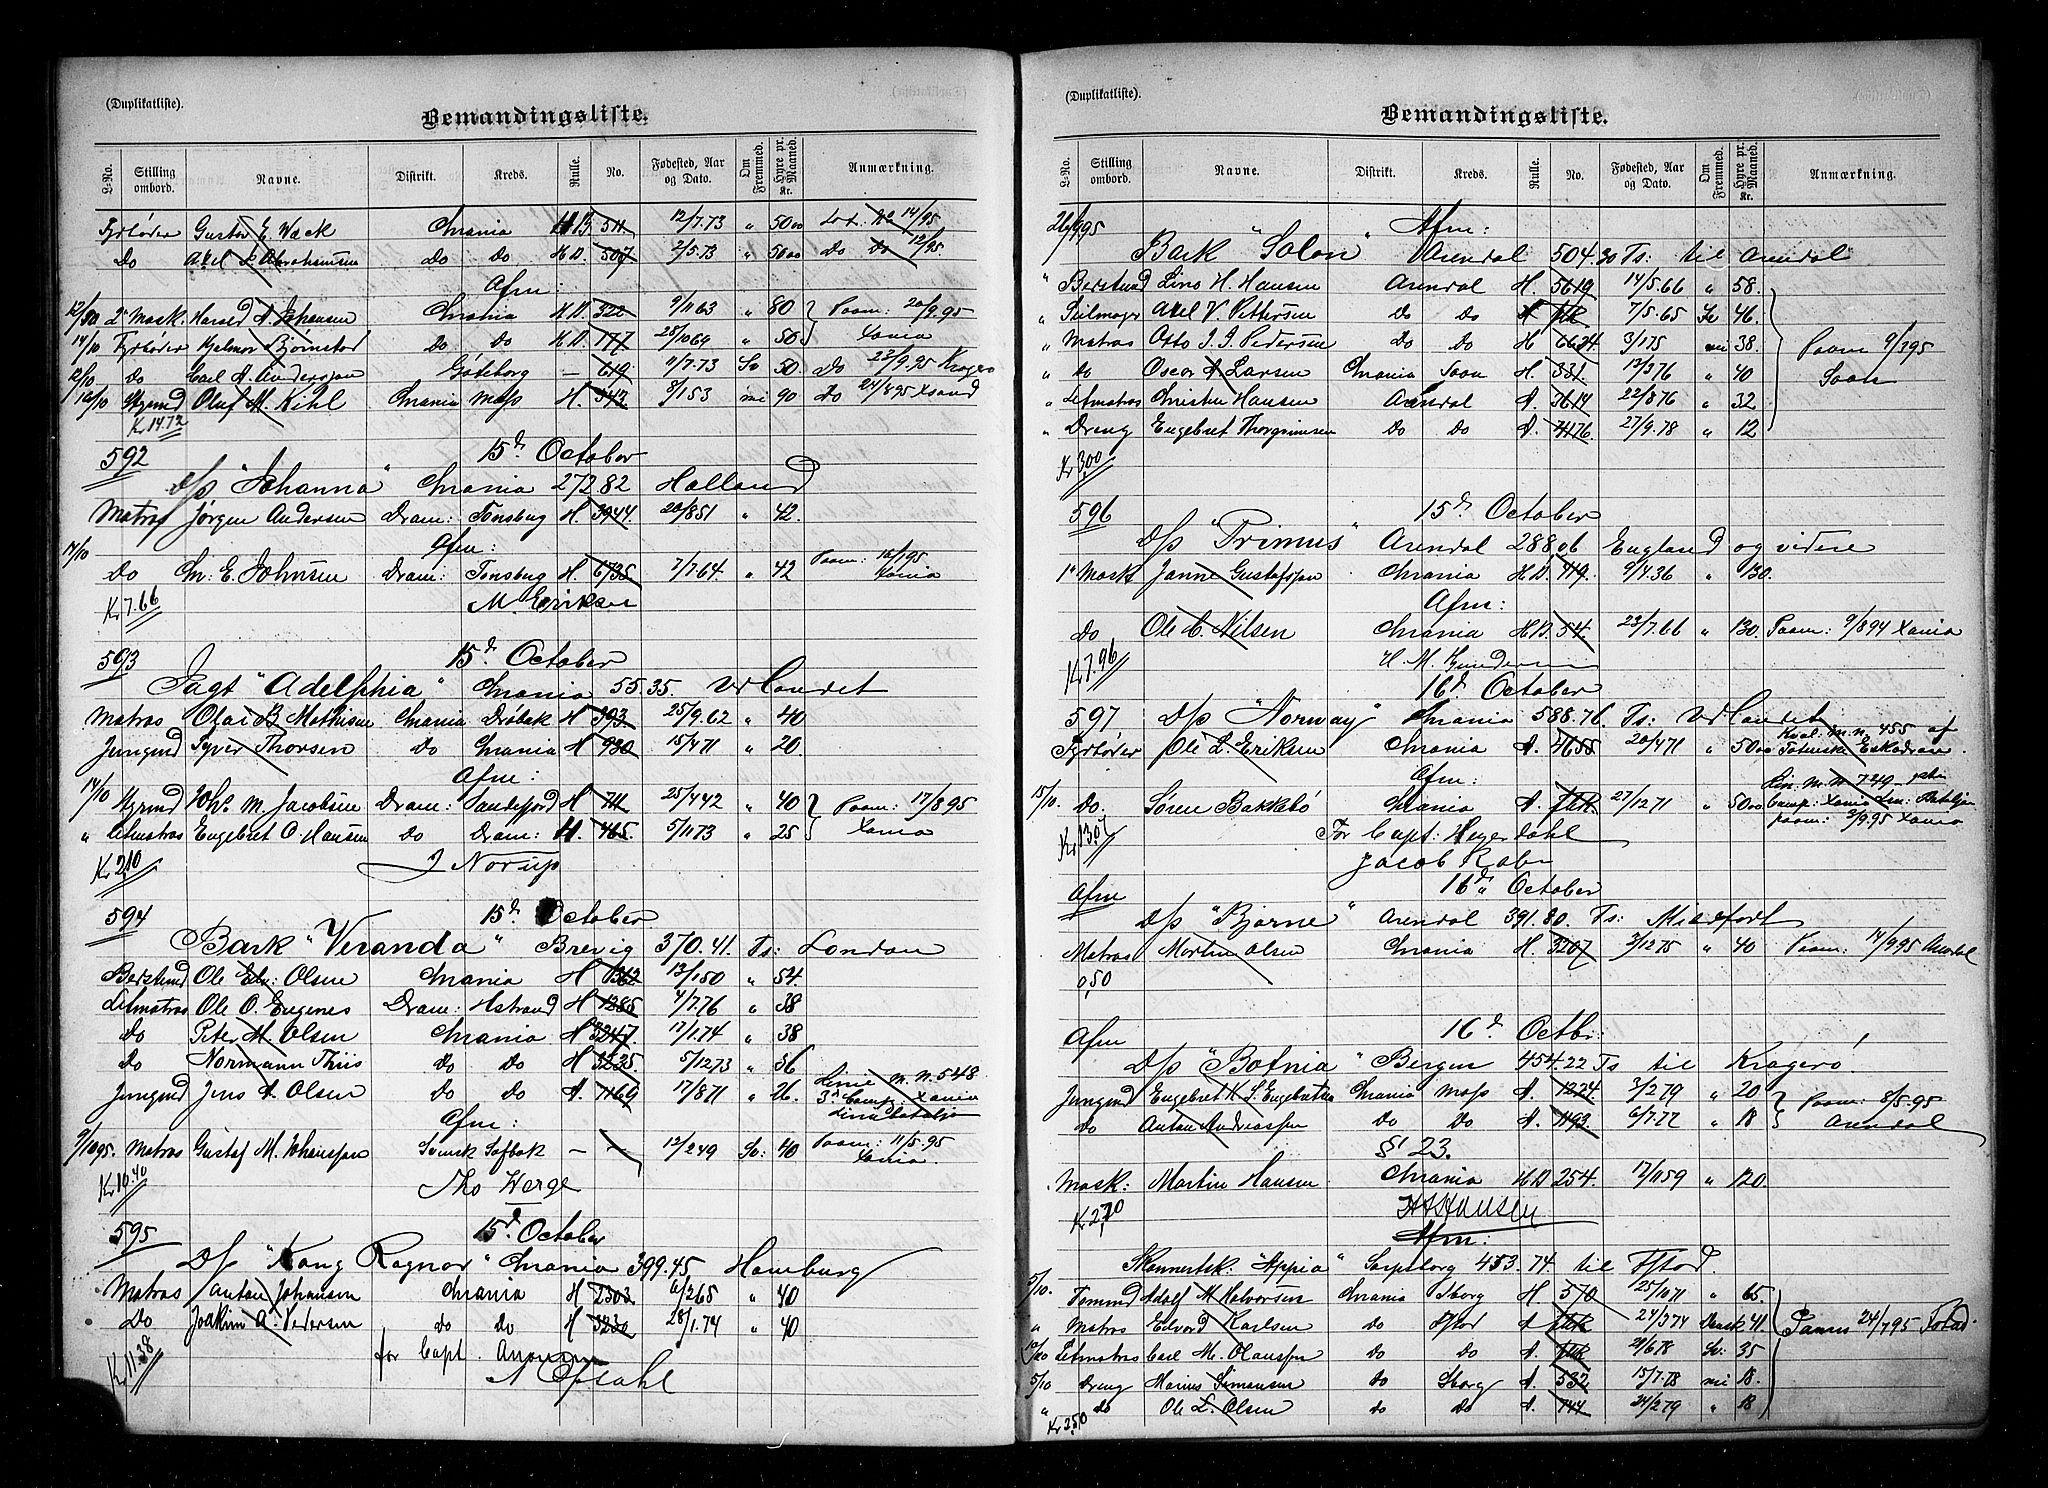 (Duplikatliste).
Bemandingsliste.
L-No. Stilling ombord. Navne. Distrikt. Kreds. Rulle. No. Fødested, Aar og Dato. Om Fremmed. Hyre pr. Maaned. Kr. Anmærkning.
Fyrbøder Gustav E. Wack Chrania 511 12/7.73 " 5000 14/95
Do Axel Abrahamsen Do Do H.D. 507 2/5.73 " 5000 Do Do 12/95
Afm:
2n Mask: Harald A Johansen Chrania H.D. 322 9/11 63 " 80 Paam: 20/9.95
14/10 Fyrbøder Hjalmar Bjørnstad Do Do H.D. 177 25/10 69 " 50 Xania
12/10 Do Carl A. Andersson Göteborg — 619 11/7.73 Sv 50 Do 23/9.95 Kragerø
12/10 Styrmd Oluf M. Kihl Chrania Moss H. 343 8/1 53 nei 90 Do 24/8 95 Xsand
Kr 14.72
592 15d October
D/s "Johanna" Chrania 272 82 Holland
Matros Jørgen Andersen Dram: Tønsbug H. 3944 20/8 51 " 42.
14/10 Afm:
Do Chr: E. Johnsen Dram: Tønsbug H. 6735 7/7.64 " 42 Paam: Xania
Kr 7.66 M. Eriksen
593 15d October
Jagt "Adelphia" Chrania 55 35. Ved Landet
Matros Olai B Mathisen Chrania Drøbak H 393 25/9.62 " 40
Jungmd Syver Thorsen Do Chrania H 980 15/4 71 " 20.
14/10 Afm:
Styrmd Joh. M. Jacobsen Dram: Sandefjord H 711 25/4 42 " 40 Paam: 17/8 95
" Letmatros Engebret O. Hansen Do Dram: H. 465 5/11 73 " 25 Xania
Kr 2,10 J Norup
594 15d October
Bark "Veranda" Brevig 370.41. Ts: London
Bestmd Ole Edv: Olsen Chrania H 1362 13/1 50 " 54.
Letmatros Ole O. Eugenes Dram: Hstrand H 1285 4/7.76 " 38
Do Peter M. Olsen Chrania H 3247 17/1.74 " 38
Do Normann Thiis Do Do H 3235. 5/12 73 " 36
Jungmd Jens A. Olsen Do Do A. 1169 17/8 71 " 26. Linie M. N. 548 3d Comp: Xania Linie Batalj:
Afm:
9/10 95. Matros Gustaf M. Johansson Svensk — — 12/2 49 Sv: 40 Paam: 11/5.95 Xania.
Kr 10.40 Tho Werge
595 15d October
D/s "Kong Ragnar" Chrania 399.45 Hamburg
Matros Anton Johansen Chrania H 2303 6/2 65 " 40
Do Joakim A. Pedersen do do H 3230 28/1.74 " 40
for Capt. Anonsen
Kr 11.38 N Opsahl
(Duplikatliste).
Bemandingsliste.
L-No. Stilling ombord. Navne. Distrikt. Kreds. Rulle. No. Fødested, Aar og Dato. Om Fremmed. Hyre pr. Maaned. Kr. Anmærkning.
26/9 95 Afm:
Bark "Solon" Arendal 504.30 Ts: til Arendal
" Bestmd Lino H. Hansen Arendal H. 5619 14/5.66 " 58.
" Seilmager Axel V. Pettersen Do Do A 7/5.65 Sv 46.
" Matros Otto J. J. Pedersen Do Do H 6634 3/1 75 nei 38. Paam 9/3 95
" do Oscar A Larsen Chrania Soon H. 331. 12/3 76 " 40 Soon
" Letmatros Christen Hansen Arendal A. 3614 22/8 76 " 32
" Dreng Engebret Thorgrimsen Do Do A. 4176. 27/9.78 " 12
Kr 3.00
596 15d October
D/s "Primus" Arendal 288.06 England og videre
1n Mask Janne Gustafsson Chrania H.D. 119. 9/4.36 " 130.
Afm:
do Ole C. Nilsen Chrania H.D. 54. 23/7.66 " 130. Paam: 9/8 94 Xania
Kr 7.96 H. M. Gundersen
16d October
597 D/s "Norway" Chrania 588.76 Ts: Ved Landet
Fyrbøder Ole L. Eriksen Chrania A. 4655 20/4 71 " 5000 Kval. M. N. 455 af Totenske Eskadron.
15/10. Afm:
Do. Søren Bakkebø Chrania A. 27/12 71 " 5000 Lin. M. N 729 Comp: Xania Lin: Batalj: Paam: 5/9.95 Xania
Kr 1.30 For Capt: Heyerdahl
Jacob Rabe
Afm 16d October
D/s "Bjørne" Arendal 391.80. Ts: Midlfort
Matros Martin Olsen Chrania H. 3207 3/12 75 " 40 Paam: 14/9 95 Arendal
0,50
Afm 16d Octbr:
D/s "Botnia" Bergen 454.22 Ts til Kragerø!
Jungmd Engebret K. S. Engebretsen Chrania Moss A. 1224. 3/2 79 " 20 Paam: 8/5.95
Do Anton Andreassen Do Do A. 1193. 6/7.77 " 18 Arendal
§ 23.
Mask: Martin Hansen Chrania H.D. 254. 17/11 59 " 120.
Kr 2,70 H A Hansen
Afm:
Skonnertsk. "Appia" Sarpsborg 453.74 til Fstad.
5/10. Tømmd Adolf M. Halvorsen Chrania Sborg H 570 25/10 71 " 65
" Matros Edvard Karlsen do Fstad A 24/3 74 Dansk 41. Paam 24/7 95 Fstad.
10/10 Letmatros Carl M. Olaussen Do Do A. 20/6 78 Sv. 35
5/10 Dreng Marius Simonsen Do Sborg A. 532 15/7.78 nei 18.
" do Ole L. Olsen do Do A. 744 24/2 79 " 18
Kr 2.50